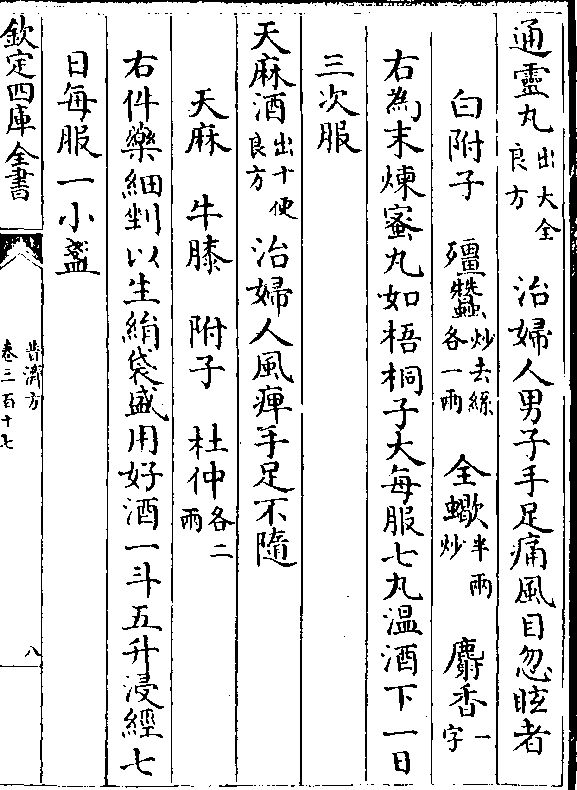 通靈丸出大全良方　治婦人男子手足痛風目忽眩者
白附子　殭蠶炒去絲各一兩　全蠍半兩炒　麝香一字
右為末煉蜜丸如梧桐子大每服七丸温酒下一日
三次服
天麻酒出十便良方　治婦人風痺手足不隨
天麻　牛膝　附子　杜仲各二兩
右件藥細剉以生絹袋盛用好酒一斗五升浸經七
日每服一小盞
欽定四庫全書
普濟方
卷三百十七
八